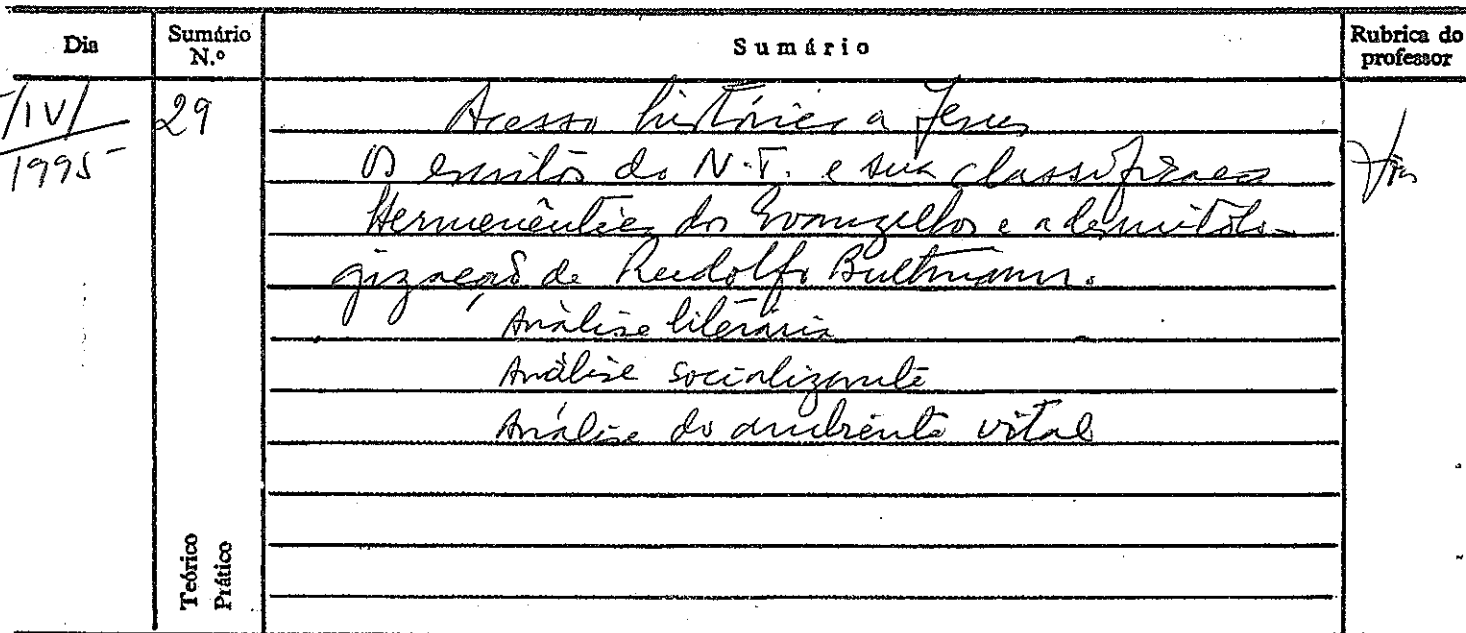 Dia Sumário N.º Sumário Rubrica do professor
/IV/ 1995 29 Acesso histórico a Jesus
Os escritos do N.T. e sua classificação
Hermenêutica dos Evangelhos e a desmitolo-
gização de Rudolfo Bultmann.
Análise literária
Análise socializante
Análise do ambiente vital
Teórico
Prático